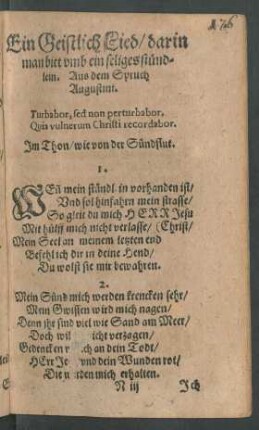 Ein Geistlich Lied / darin
man bitt vmb ein seliges stünd-
lein. Aus dem Spruch
Augustini.
Turbabor, sed non perturbabor,
Quia vulnerum Christi recordabor.
Im Thon / wie von der Sündflut.
1.
WEñ mein stündlin vorhanden ist /
Vnd sol hinfahrn mein strasse /
So gleit du mich HERR Jesu
Mit hülff mich nicht verlasse / (Christ /
Mein Seel an meinem letzten end
Befehl ich dir in deine Hend /
Du wolst sie mir bewahren.
2.
Mein Sünd mich werden krencken sehr /
Mein Gwissen wird mich nagen /
Denn jhr sind viel wie Sand am Meer /
Doch wil icht verzagen /
Gedencken ch an dein Todt /
HErr Je vnd dein Wunden rot /
Die den mich erhalten.
N iij Ich